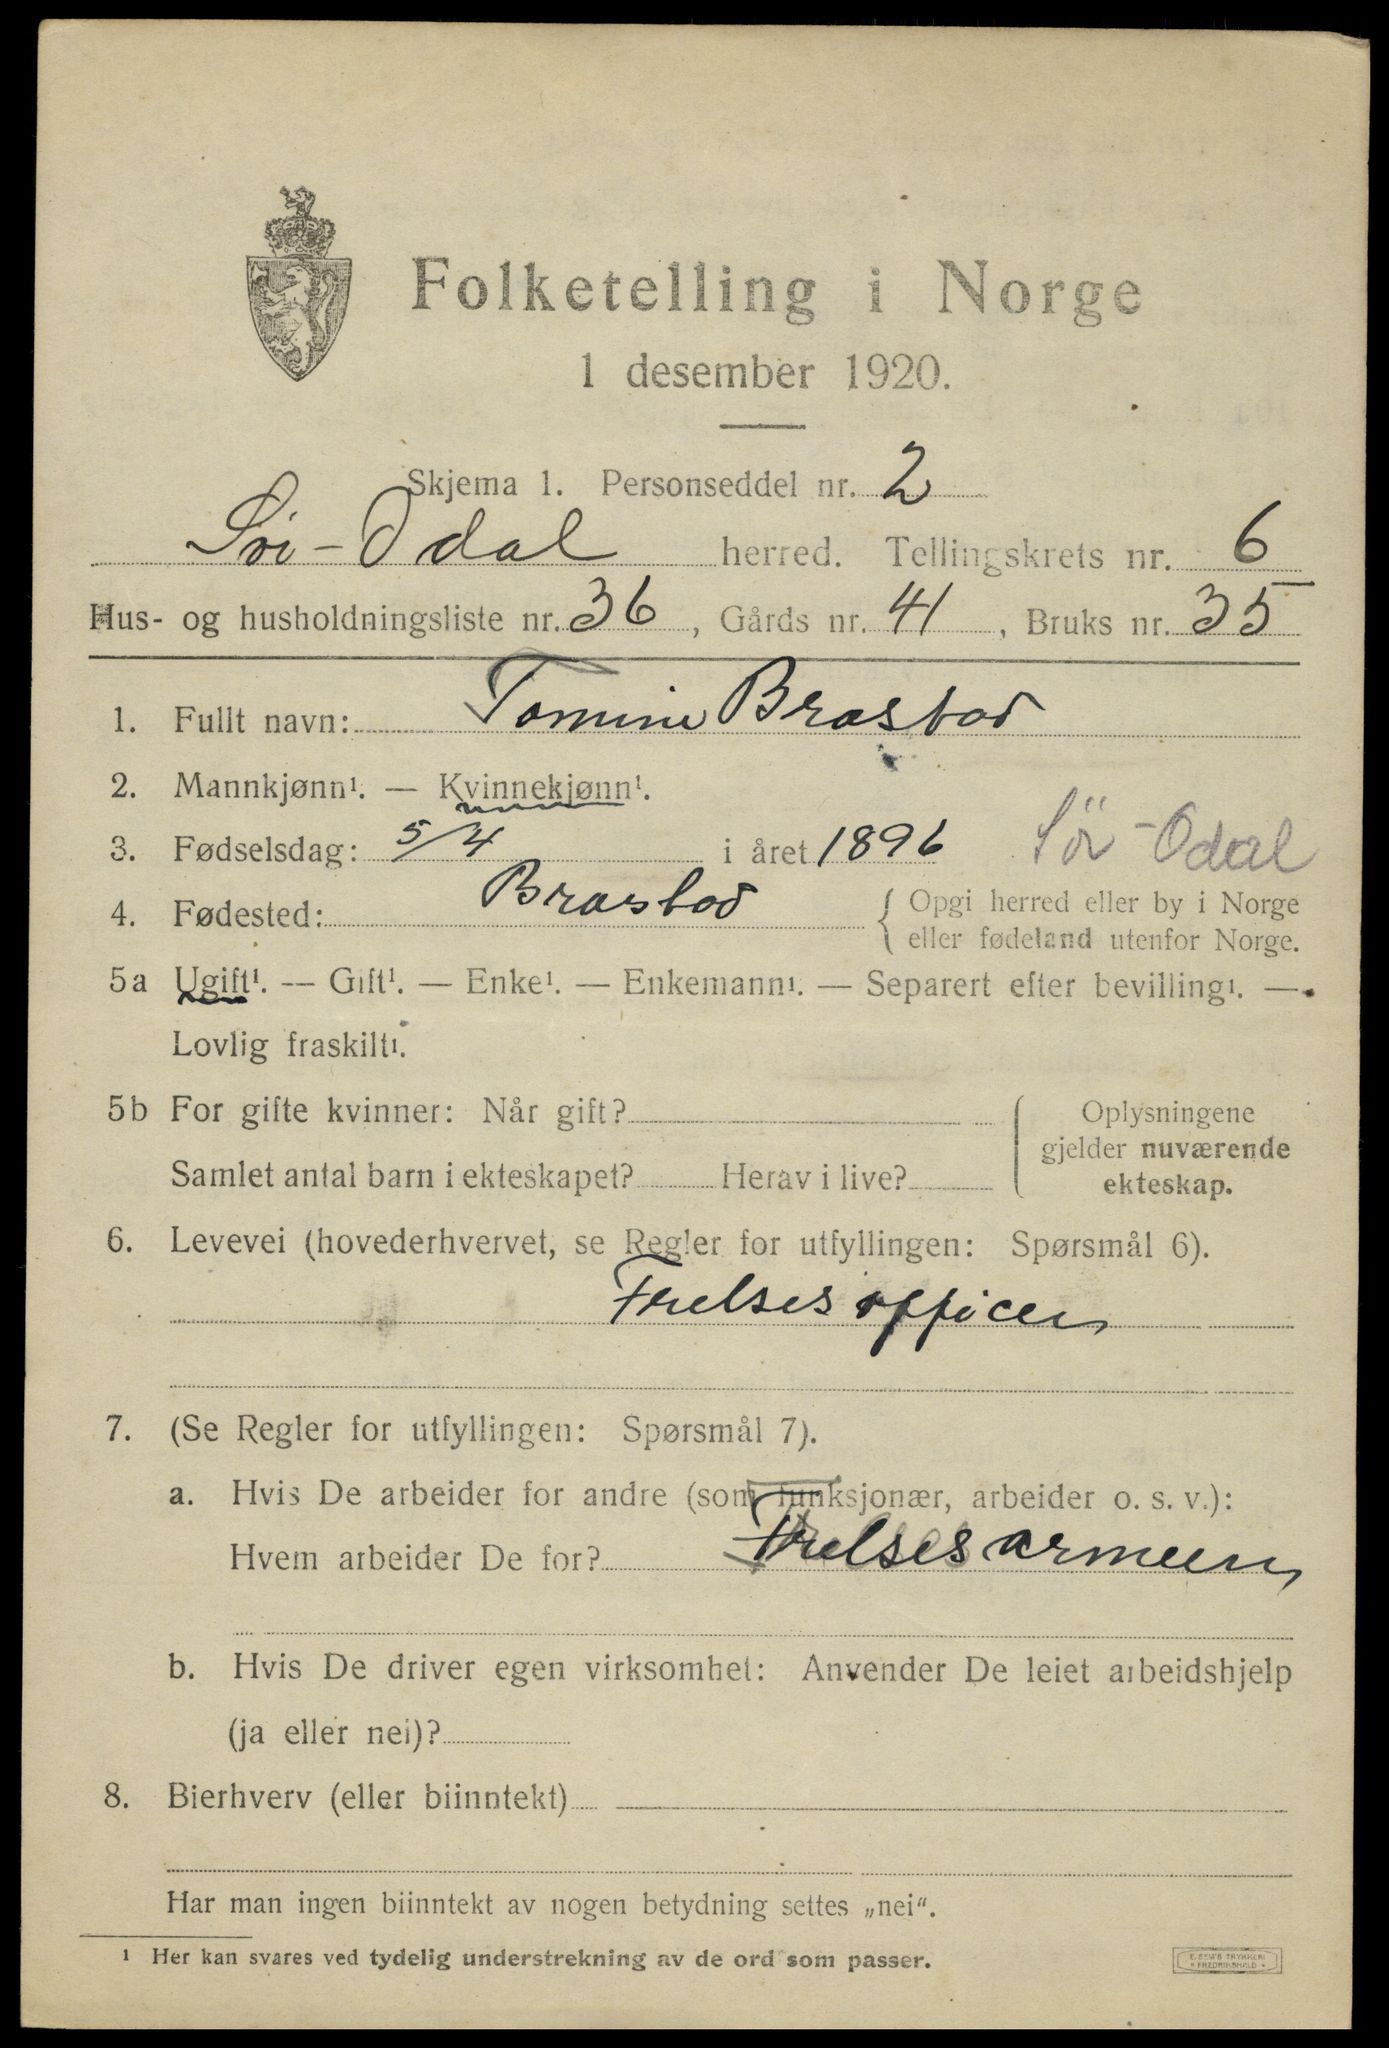 Folketelling i Norge
1 desember 1920.
Skjema 1. Personseddel nr. 2
Sør-Odal herred. Tellingskrets nr. 6
Hus- og husholdningsliste nr. 36, Gårds nr. 41, Bruks nr. 35
1. Fullt navn: Tomine Brastad
2. Mannkjønn¹. — Kvinnekjønn¹.
3. Fødselsdag: 5/4 i året 1896 Sör-Odal
4. Fødested: Brastad { Opgi herred eller by i Norge
eller fødeland utenfor Norge.
5a Ugift¹. — Gift¹. — Enke¹. — Enkemann¹. — Separert efter bevilling¹. —
Lovlig fraskilt¹.
5b For gifte kvinner: Når gift? { Oplysningene
gjelder nuværende
Samlet antal barn i ekteskapet? Herav i live? ekteskap.
6. Levevei (hovederhvervet, se Regler for utfyllingen: Spørsmål 6).
Frelsesofficer
7. (Se Regler for utfyllingen: Spørsmål 7).
a. Hvis De arbeider for andre (som funksjonær, arbeider o. s. v.):
Hvem arbeider De for? Frelsesarmeen
b. Hvis De driver egen virksomhet: Anvender De leiet arbeidshjelp
(ja eller nei)?
8. Bierhverv (eller biinntekt)
Har man ingen biinntekt av nogen betydning settes „nei“.
¹ Her kan svares ved tydelig understrekning av de ord som passer.
E. SEM'S TRYKKERI
FREDRIKSHALD